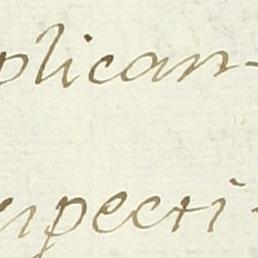 plican-
specti-